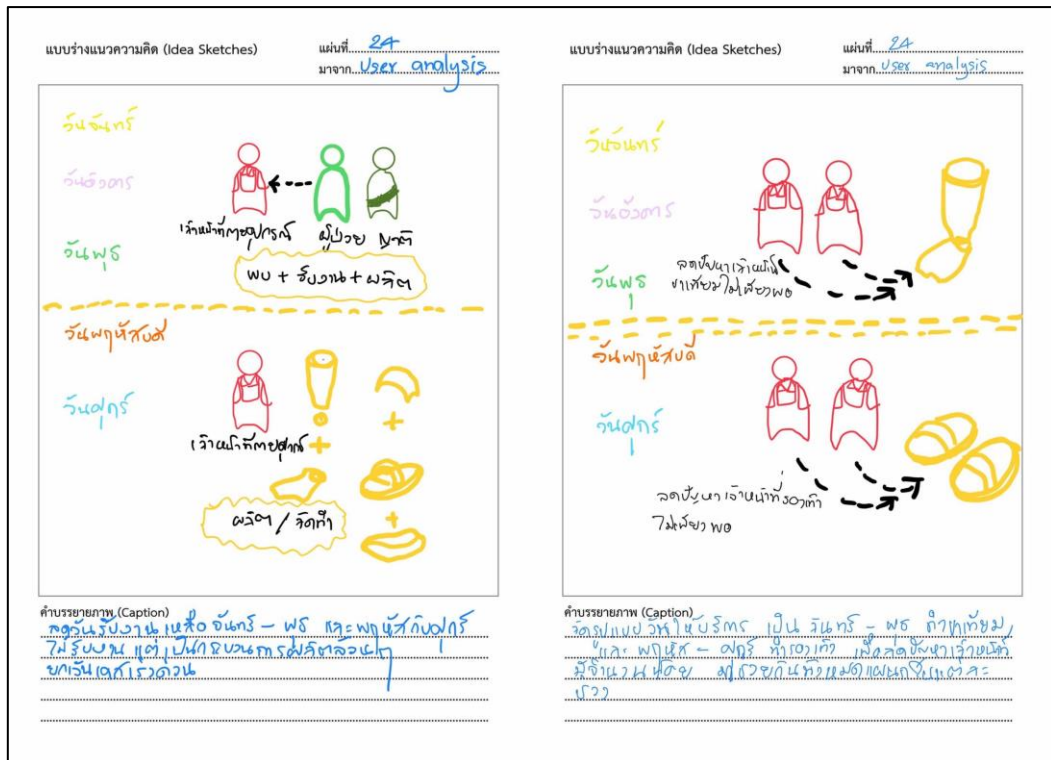 แบบร่างแนวความคิด (Idea Sketches)
แผ่นที่ 24
มาจาก User analysis
วันจันทร์
วันอังคาร
วันพุธ
เจ้าหน้าที่กายอุปกรณ์ ผู้ป่วย ญาติ
พบ + รับงาน + ผลิต
วันพฤหัสบดี
วันศุกร์
เจ้าหน้าที่กายอุปกรณ์
ผลิต / จัดทำ
คำบรรยายภาพ (Caption)
ลดวันรับงาน เหลือ จันทร์ - พุธ และพฤหัสกับศุกร์
ไม่รับงาน แต่เป็นกระบวนการผลิตล้วนๆ
ยกเว้นเคสเร่งด่วน
แบบร่างแนวความคิด (Idea Sketches)
แผ่นที่ 24
มาจาก User analysis
วันจันทร์
วันอังคาร
วันพุธ
ลดปัญหาเจ้าหน้าที่
ขาเทียมไม่เพียงพอ
วันพฤหัสบดี
วันศุกร์
ลดปัญหาเจ้าหน้าที่รองเท้า
ไม่เพียงพอ
คำบรรยายภาพ (Caption)
จัดรูปแบบวันให้บริการ เป็น จันทร์ - พุธ ทำขาเทียม
และ พฤหัส - ศุกร์ ทำรองเท้า เพื่อลดปัญหาเจ้าหน้าที่
มีจำนวนน้อย มาช่วยกันทั้งหมดแผนก ในแต่ละ
ช่วง